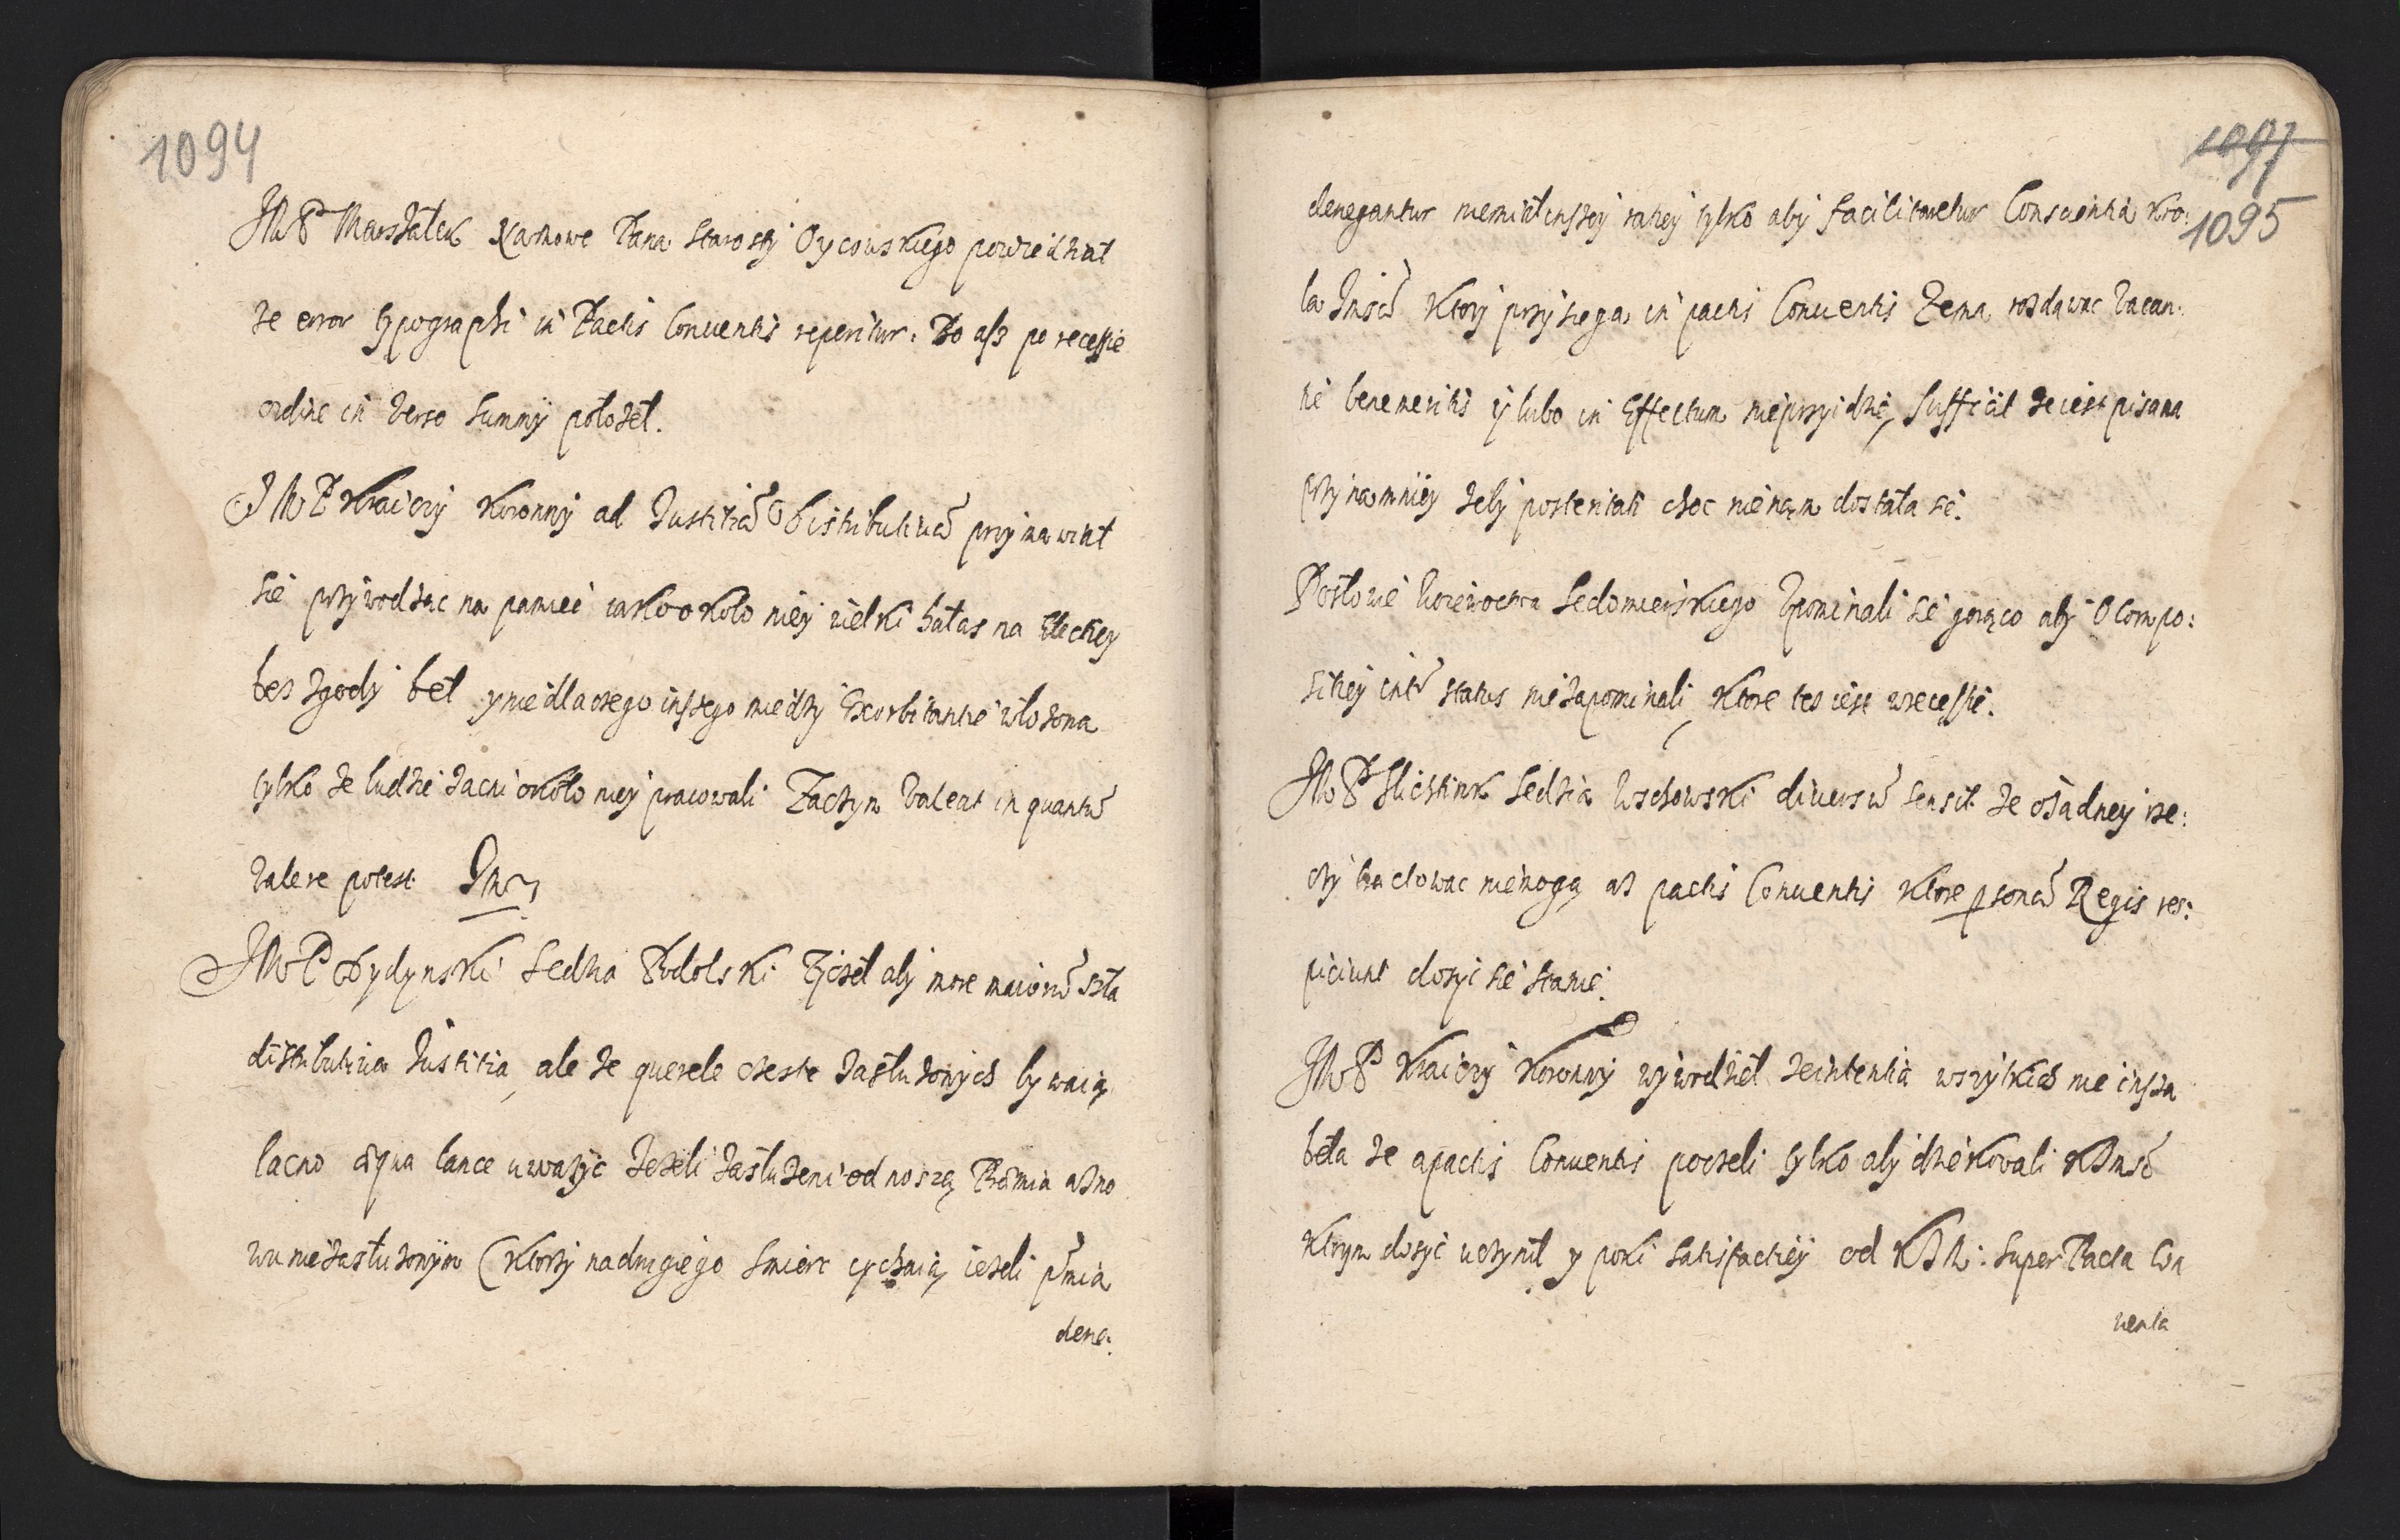 1094
JMP Marszałek Namowe Pana Starosty Oycowskiego powiedział
że error typographi in Pactis Conventis reperitur. Bo asz po recessie
ordine in verso summy położeł.
JMP Kraiczy Koronny ad Justitiã Distributivã przymawiał
sie przywodząc na pamiec iako około niey wielki hałas na Elekcyey
bes zgody beł y nie dla czego inszego miedzy Exorbitantie włożona
tylko że ludzie zacni około niey pracowali Zaczym Valeat in quantũ
valere potest
JMP Dydynski Sedzia Podolski życzeł aby more maiorũ szła
distributiva Justitia, ale że querele czeste zasłużonych bywaią
lacno æqua lance uwazyc Jeżeli zasłużeni odnoszą Præmia az no
wu niezasłużonym (Ktorzy na drugiego smierc czychaią, ieżeli p̃mia
dene:
1097
1095
denegantur niemiał inszey rakey tylko aby facilitaretur Conscientia Kro:
la Jmści Ktory przysiega in pactis Conventis Zema rozdawac Vacan:
tie benemeritis y lubo in Effectum nieprzyidzie, sufficit że iest pisana
przynamniey żeby posteritati choc nie nam dostała sie.
Posłowie Woiewoctwa Sedomierskiego Upominali sie gorąco aby O Compo:
sitiey intr̃ status niezapominali, Ktore tes iest w recessie.
JMP Slichtink Sedzia Wschowski diversũ sensit że o żadney rze:
czy tractowac niemogą aż pactis Conventis Ktore psonã Regis res:
piciunt dosyc sie stanie.
JMP Kraiczy Koronny wywodzieł że intentia wszytkich nie insza
beła że a pactis Conventis poczeli tylko aby dziekowali KJmśc̃
Ktorym dosyc uczynił y poki satisfactiey od KJM: super Pacta Con
venta